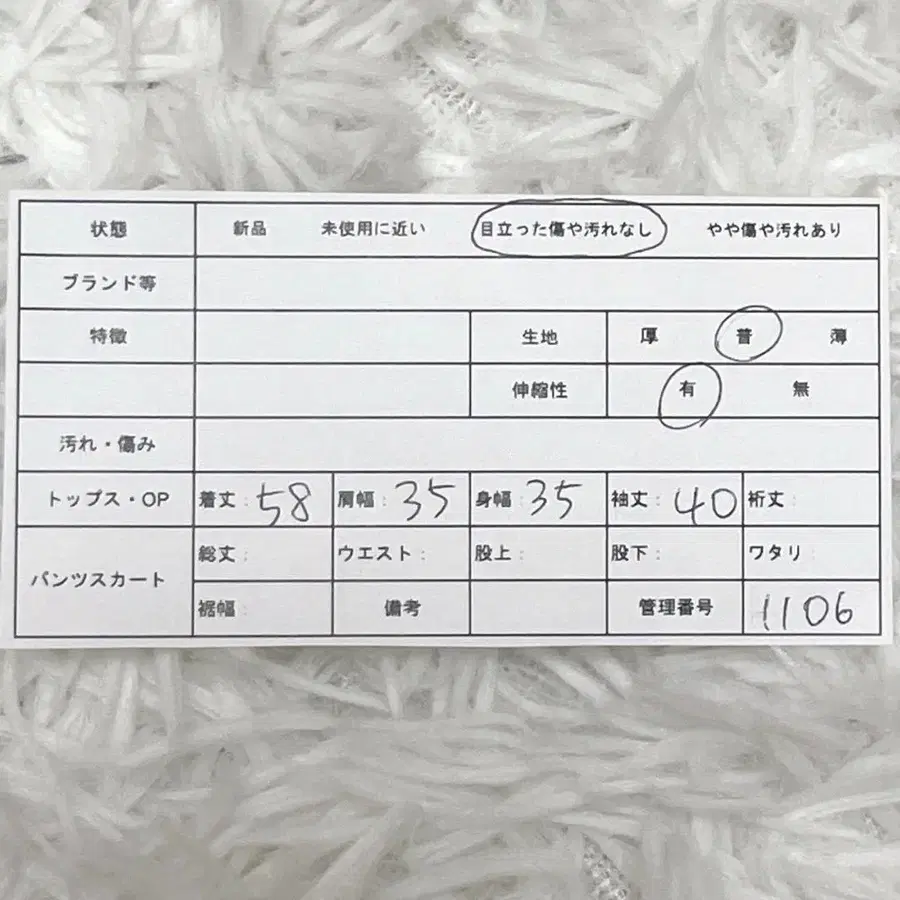 状態 新品 未使用に近い 目立った傷や汚れなし やや傷や汚れあり
ブランド等
特徴 生地 厚 普 薄
伸縮性 有 無
汚れ・傷み
トップス・OP 着丈: 58 肩幅: 35 身幅: 35 袖丈: 40 裄丈:
パンツスカート 総丈: ウエスト: 股上: 股下: ワタリ:
裾幅: 備考 管理番号 1106